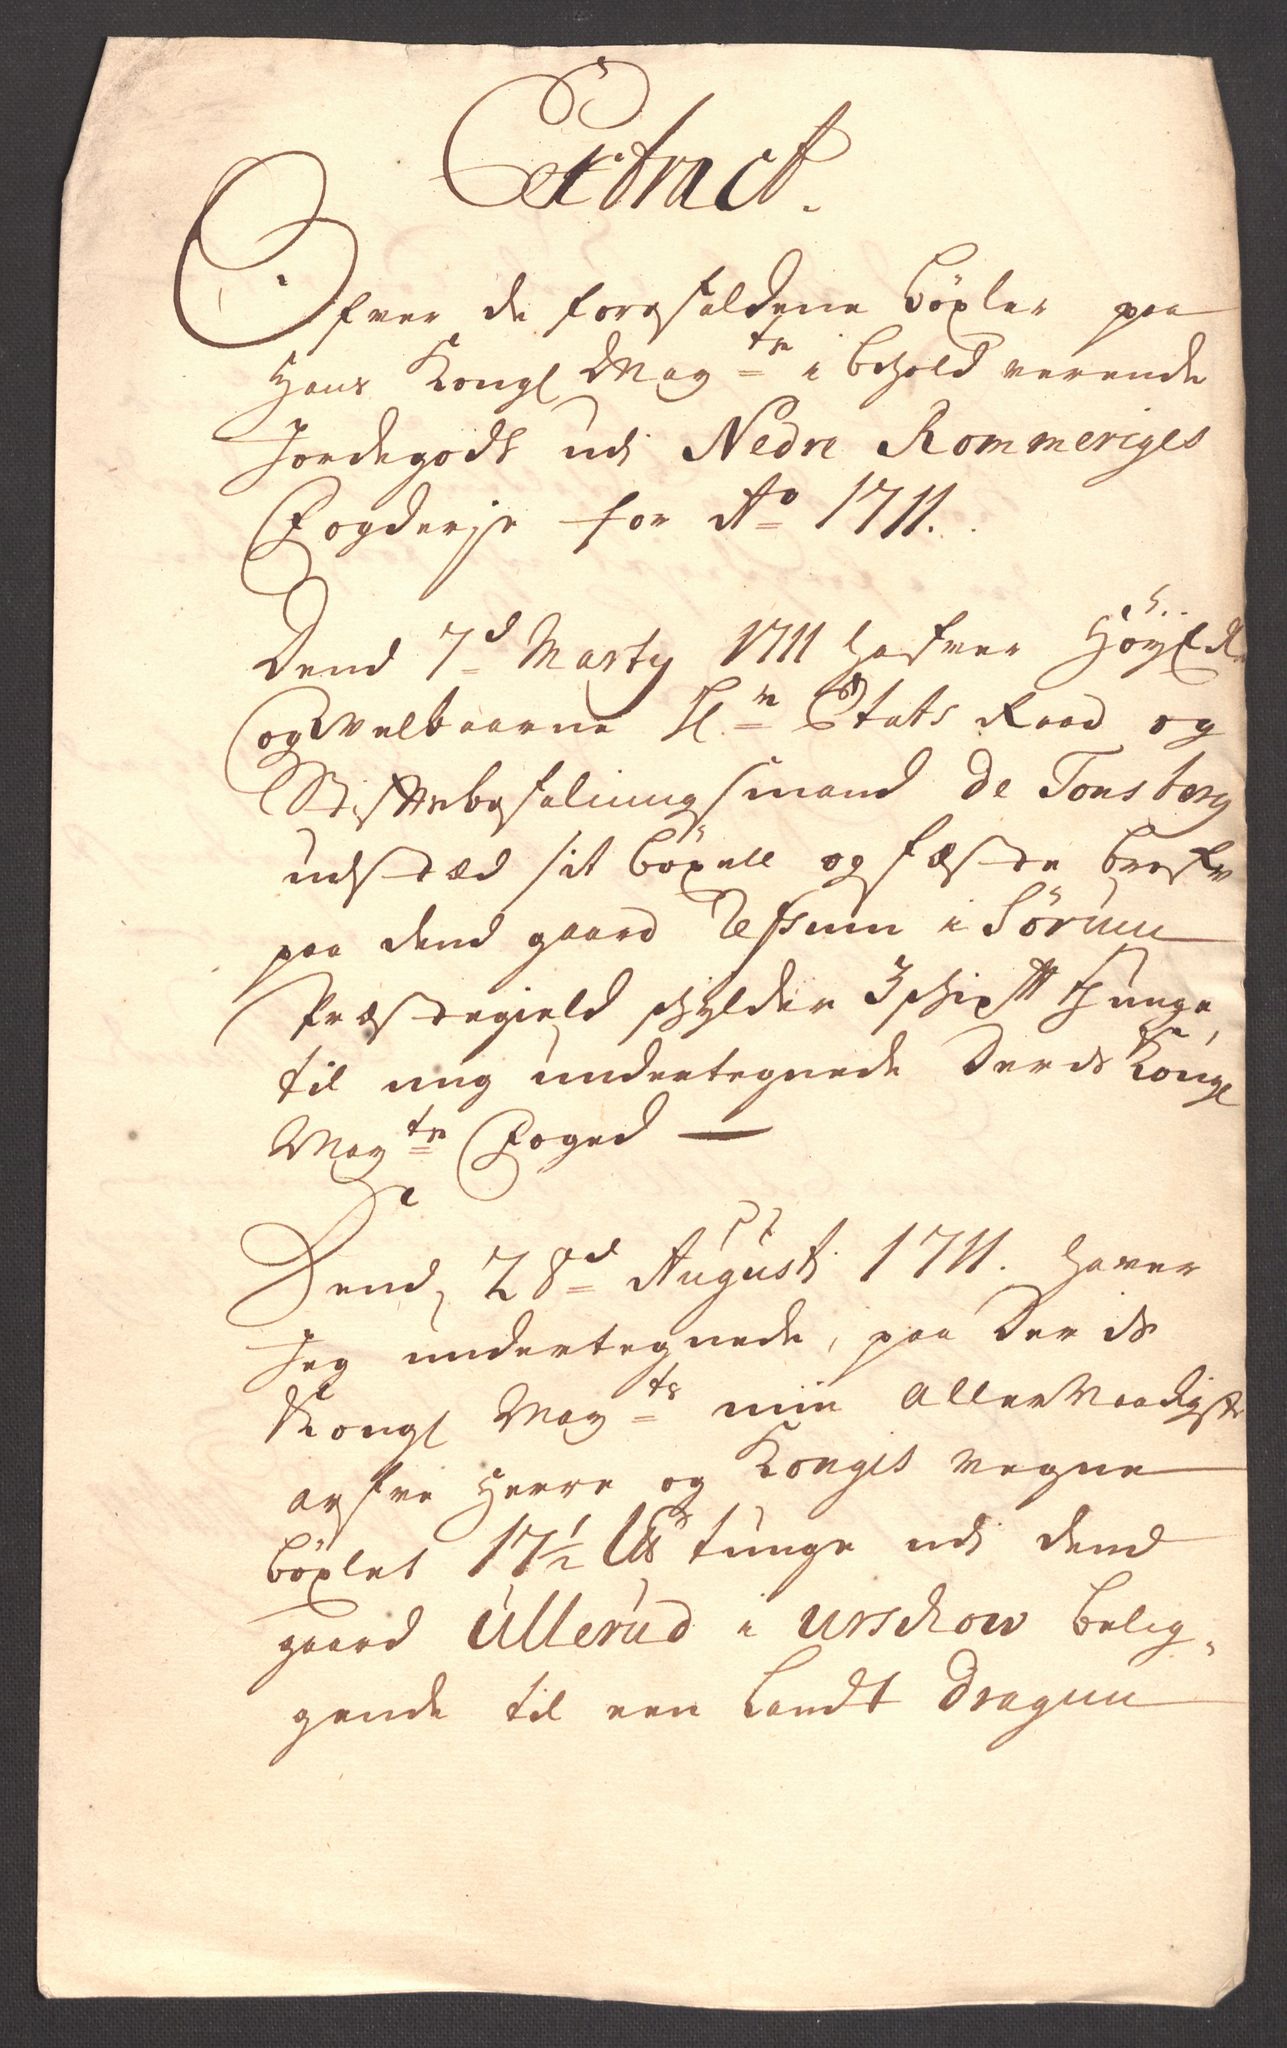 Extract.
Ofver de forefaldene böxler paa
Hans Kongl May:ts i behold verende
Jordegods udj Nedre Rommeriges
Fogderje for Ao 1711.
Dend 7d Marty 1711 hafver Höyædle
og Velbaarne Hr. Etats Raad og
Stiftsbefalingsmand de Tonsberg
udstæd sit böxell og fæste bref
paa dend gaard Refsum i Sörum
Præstegield schylder 3 schip℔ tunge,
til mig undertegnede Deris Kongl
May:ts Foged —
Dend 28d Augusti 1711. haver
Jeg undertegnede, paa Deris
Kongl May:ts min allernaadigste
arfve Herre og Konges vegne
böxlet 17½ L℔ tunge udi dend
gaard Ullerud i Urschow belig-
gende til een Landt Dragun